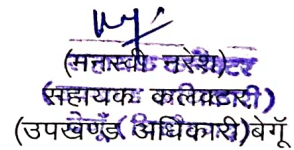 (मनस्वी नरेश)
(सहायक कलेक्टरी)
(उपखण्ड अधिकारी) बेगूँ